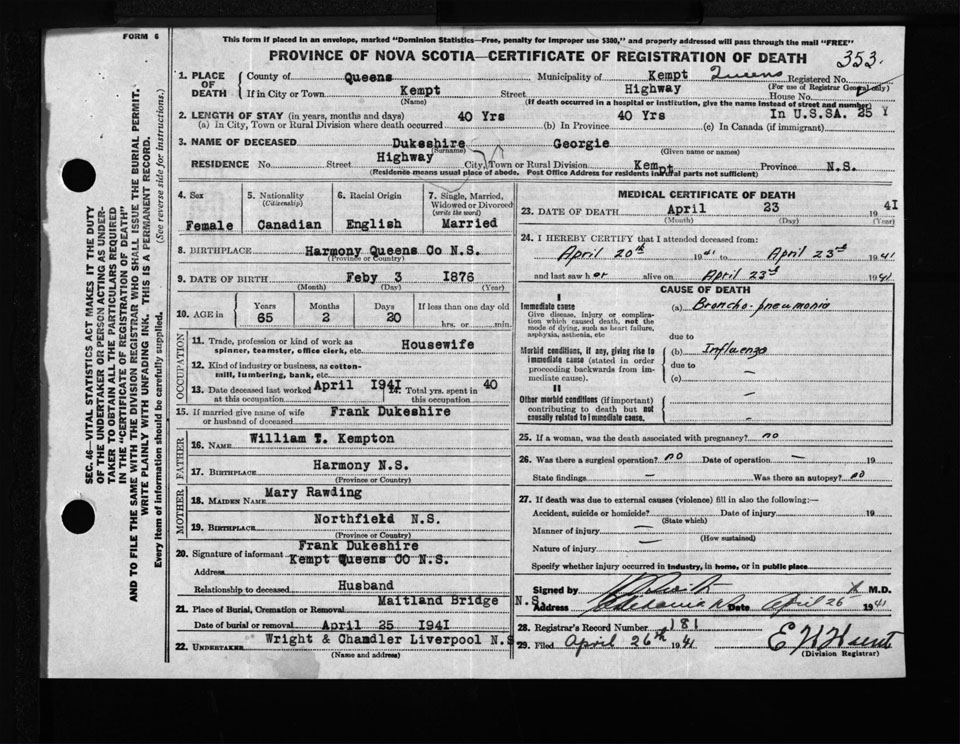 FORM 6
This form if placed in an envelope, marked "Dominion Statistics—Free, penalty for improper use $300," and properly addressed will pass through the mail "FREE"
PROVINCE OF NOVA SCOTIA—CERTIFICATE OF REGISTRATION OF DEATH 353.
SEC. 46—VITAL STATISTICS ACT MAKES IT THE DUTY
OF THE UNDERTAKER OR PERSON ACTING AS UNDER-
TAKER TO OBTAIN ALL THE PARTICULARS REQUIRED
IN THE "CERTIFICATE OF REGISTRATION OF DEATH"
AND TO FILE THE SAME WITH THE DIVISION REGISTRAR WHO SHALL ISSUE THE BURIAL PERMIT.
WRITE PLAINLY WITH UNFADING INK. THIS IS A PERMANENT RECORD.
Every item of information should be carefully supplied. (See reverse side for instructions.)
1. PLACE OF DEATH
County of Queens Municipality of Kempt Queens Registered No.
(For use of Registrar General only)
If in City or Town Kempt Street Highway House No.
(Name) (If death occurred in a hospital or institution, give the name instead of street and number)
2. LENGTH OF STAY (in years, months and days) 40 Yrs 40 Yrs In U.S.SA. 25 Y
(a) In City, Town or Rural Division where death occurred (b) In Province (c) In Canada (if immigrant)
3. NAME OF DECEASED Dukeshire Georgie
(Surname) (Given name or names)
RESIDENCE No. Street Highway City, Town or Rural Division Kempt Province N.S.
(Residence means usual place of abode. Post Office Address for residents in rural parts not sufficient)
4. Sex
Female
5. Nationality
(Citizenship)
Canadian
6. Racial Origin
English
7. Single, Married,
Widowed or Divorced
(write the word)
Married
8. BIRTHPLACE Harmony Queens Co N.S.
(Province or Country)
9. DATE OF BIRTH Feby 3 1876
(Month) (Day) (Year)
10. AGE in Years 65 Months 2 Days 20 If less than one day old
hrs. or min.
OCCUPATION
11. Trade, profession or kind of work as
spinner, teamster, office clerk, etc. Housewife
12. Kind of industry or business, as cotton-
mill, lumbering, bank, etc.
13. Date deceased last worked at this occupation April 1941 14. Total yrs. spent in this occupation 40
15. If married give name of wife
or husband of deceased Frank Dukeshire
FATHER
16. NAME William T. Kempton
17. BIRTHPLACE Harmony N.S.
(Province or Country)
MOTHER
18. MAIDEN NAME Mary Rawding
19. BIRTHPLACE Northfield N.S.
(Province or Country)
20. Signature of informant Frank Dukeshire
Address Kempt Queens CO N.S.
Relationship to deceased Husband
21. Place of Burial, Cremation or Removal Maitland Bridge N.S.
Date of burial or removal April 25 1941
22. UNDERTAKER Wright & Chandler Liverpool N.S
(Name and address)
MEDICAL CERTIFICATE OF DEATH
23. DATE OF DEATH April 23 1941
(Month) (Day) (Year)
24. I HEREBY CERTIFY that I attended deceased from:
April 20th 1941 to April 23d 1941
and last saw her alive on April 23d 1941
CAUSE OF DEATH
I
Immediate cause
Give disease, injury or complica-
tion which caused death, not the
mode of dying, such as heart failure,
asphyxia, asthenia, etc
(a) Broncho-pneumonia
due to
Morbid conditions, if any, giving rise to
immediate cause (stated in order
proceeding backwards from im-
mediate cause).
(b) Influenza
due to
(c) —
II
Other morbid conditions (if important)
contributing to death but not
causally related to immediate cause.
—
—
25. If a woman, was the death associated with pregnancy? no
26. Was there a surgical operation? no Date of operation — 19
State findings — Was there an autopsy? no
27. If death was due to external causes (violence) fill in also the following:—
Accident, suicide or homicide? Date of injury 19
(State which)
Manner of injury —
(How sustained)
Nature of injury —
Specify whether injury occurred in industry, in home, or in public place
Signed by M.D.
Address Date April 26 1941
28. Registrar's Record Number 181
29. Filed April 26th 1941
(Division Registrar)